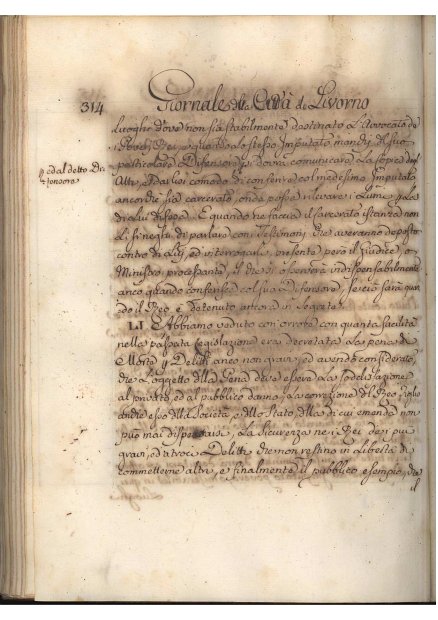 314
Giornale della Città di Livorno
Luoghi dove non sia stabilmente destinato l'Avvocato de
Poveri Rei, quando lo stesso Imputato mandi il suo
particolare Difensore, si dovrà comunicare la Copia degl'
ed al detto Di-
fensore
Atti, e darli comodo di conferire col medesimo Imputato
ancorchè sia carcerato, onde possa rilevare i Lumi p la
di lui difesa. E quando ne faccia il carcerato istanza non
li si neghi di parlare con i Testimoni che averanno deposto
contro di Lui, ed interrogarli, presente però il Giudice, o
Ministro processante, il che si osserverà indispensabilmente
anco quando conferisca col suo Difensore, se ciò sarà quan
do il Reo è detenuto ancora in segrete.
LI. Abbiamo veduto con orrore con quanta facilità
nella passata Legislazione era decretata la pena di
Morte p Delitti anco non gravi, ed avendo considerato,
che l'oggetto della Pena deve essere la sodisfazione
al privato, ed al pubblico danno, la correzione del Reo figlio
anche esso della Società, e dello Stato, della di cui emenda non
può mai disperarsi, la sicurezza nei Rei dei più
gravi, ed atroci Delitti che non restino in Libertà di
commetterne altri, e finalmente il pubblico esempio, che
il